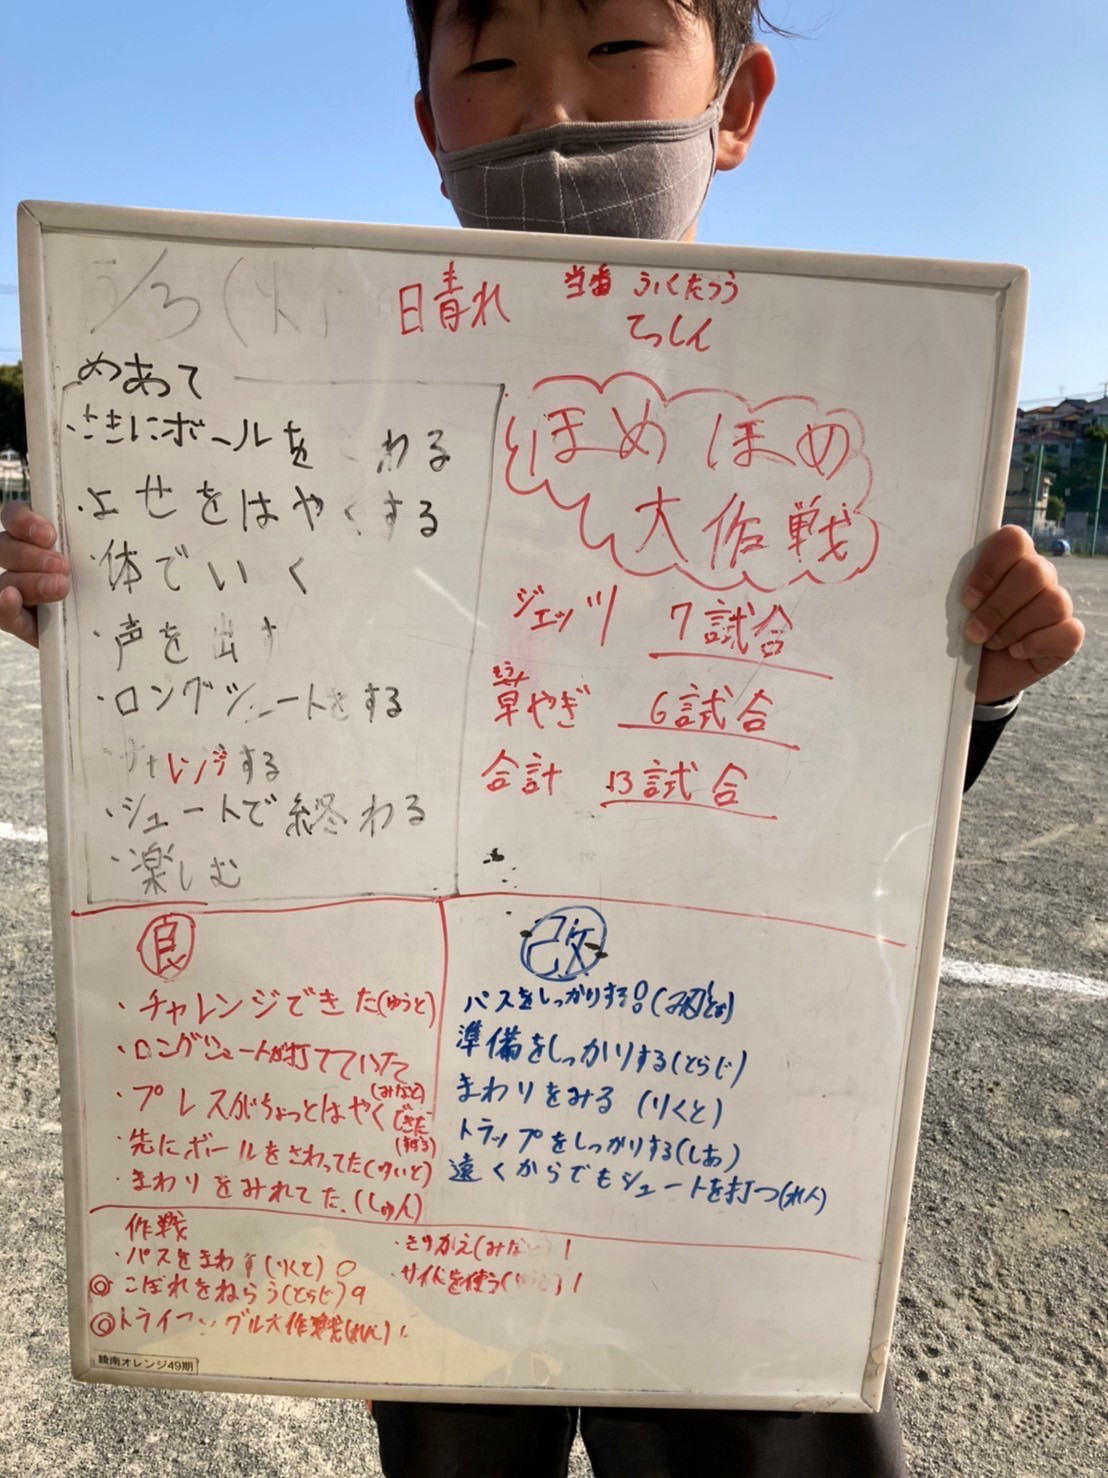 5/3(火)
日晴れ
当番 ふくだっう
てっしん
めあて
・さきにボールをわる
・よせをはやくする
・体でいく
・声を出す
・ロングシュートをする
チャレンジする
・シュートで終わる
・楽しむ
ほめほめ
大作戦
ジェッツ 7試合
草やぎ 6試合
合計 13試合
良
・チャレンジできた(ゆうと)
・ロングシュートが打てていた
(みなと)
・プレスがちょっとはやくできた
・先にボールをさわってた(けいと)
・まわりをみれてた。(しゅん)
改
パスをしっかりする!
準備をしっかりする(とらじ)
まわりをみる(りくと)
トラップをしっかりする(しあ)
遠くからでもシュートを打つ(れん)
作戦
・パスをまわす(りくと)0
◎こぼれをねらう(とらじ)9
◎トライアングル大作戦
・きりかえ(みな 1
・サイドを使う 1
綾南オレンジ49期